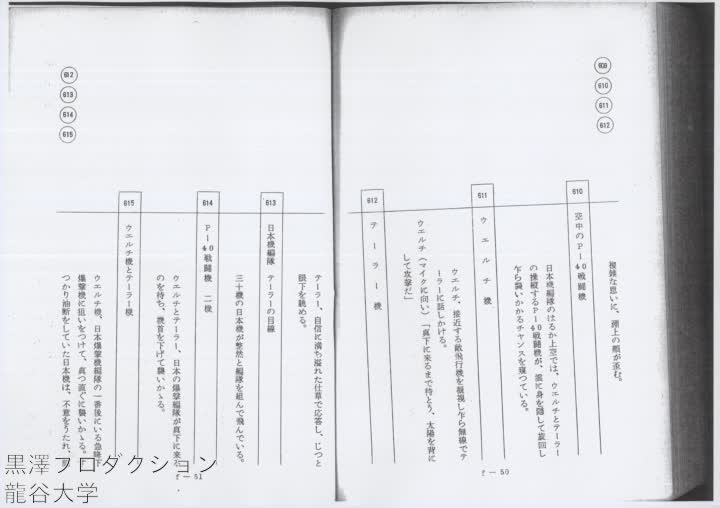 609
610
611
612
複雑な思いに、淵上の顔が歪む。
610
空中のP-40戦闘機
日本機編隊のはるか上空では、ウエルチとテーラー
の操縦するP-40戦闘機が、雲に身を隠して旋回し
乍ら襲いかかるチャンスを窺つている。
611
ウエルチ機
ウエルチ、接近する敵飛行機を凝視し乍ら無線でテ
ーラーに話しかける。
ウエルチ(マイクに向い)「真下に来るまで待とう、太陽を背に
して攻撃だ」
612
テーラー機
f-50
612
613
614
615
テーラー、自信に満ち溢れた仕草で応答し、じつと
眼下を眺める。
613
日本機編隊 テーラーの目線
三十機の日本機が整然と編隊を組んで飛んでいる。
614
P-40戦闘機 二機
ウエルチとテーラー、日本の爆撃編隊が真下に来る
のを待ち、機首を下げて襲いかゝる。
615
ウエルチ機とテーラー機
ウエルチ機、日本爆撃機編隊の一番後にいる急降下
爆撃機に狙いをつけて、真つ直ぐに襲いかゝる。
つかり油断をしていた日本機は、不意をうたれ、
f-51
黒澤プロダクション
龍谷大学